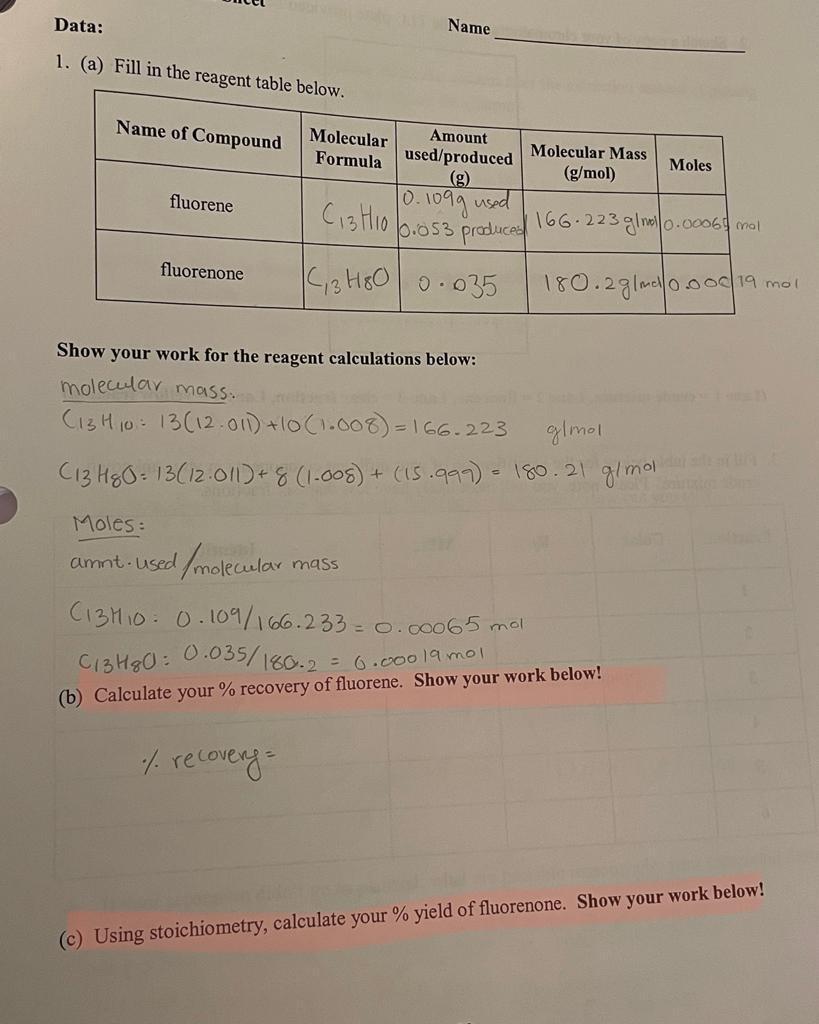 Data:
Name
1. (a) Fill in the reagent table below.
Name of Compound
Molecular Formula
Amount used/produced (g)
Molecular Mass (g/mol)
Moles
fluorene
C13H10
0.109g used
0.053 produced
166.223 g/mol
mol
fluorenone
C13H8O
0.035
180.2g/mol
0.00019 mol
Show your work for the reagent calculations below:
molecular mass:
C13H10: 13(12.011)+10(1.008)=166.223 g/mol
C13H8O: 13(12.011)+ 8 (1.008) + (15.999) = 180.21 g/mol
Moles:
amnt. used/molecular mass
C13H10: 0.109/166.233 = 0.00065 mol
C13H8O: 0.035/180.2 = 0.00019 mol
(b) Calculate your % recovery of fluorene. Show your work below!
% recovery=
(c) Using stoichiometry, calculate your % yield of fluorenone. Show your work below!